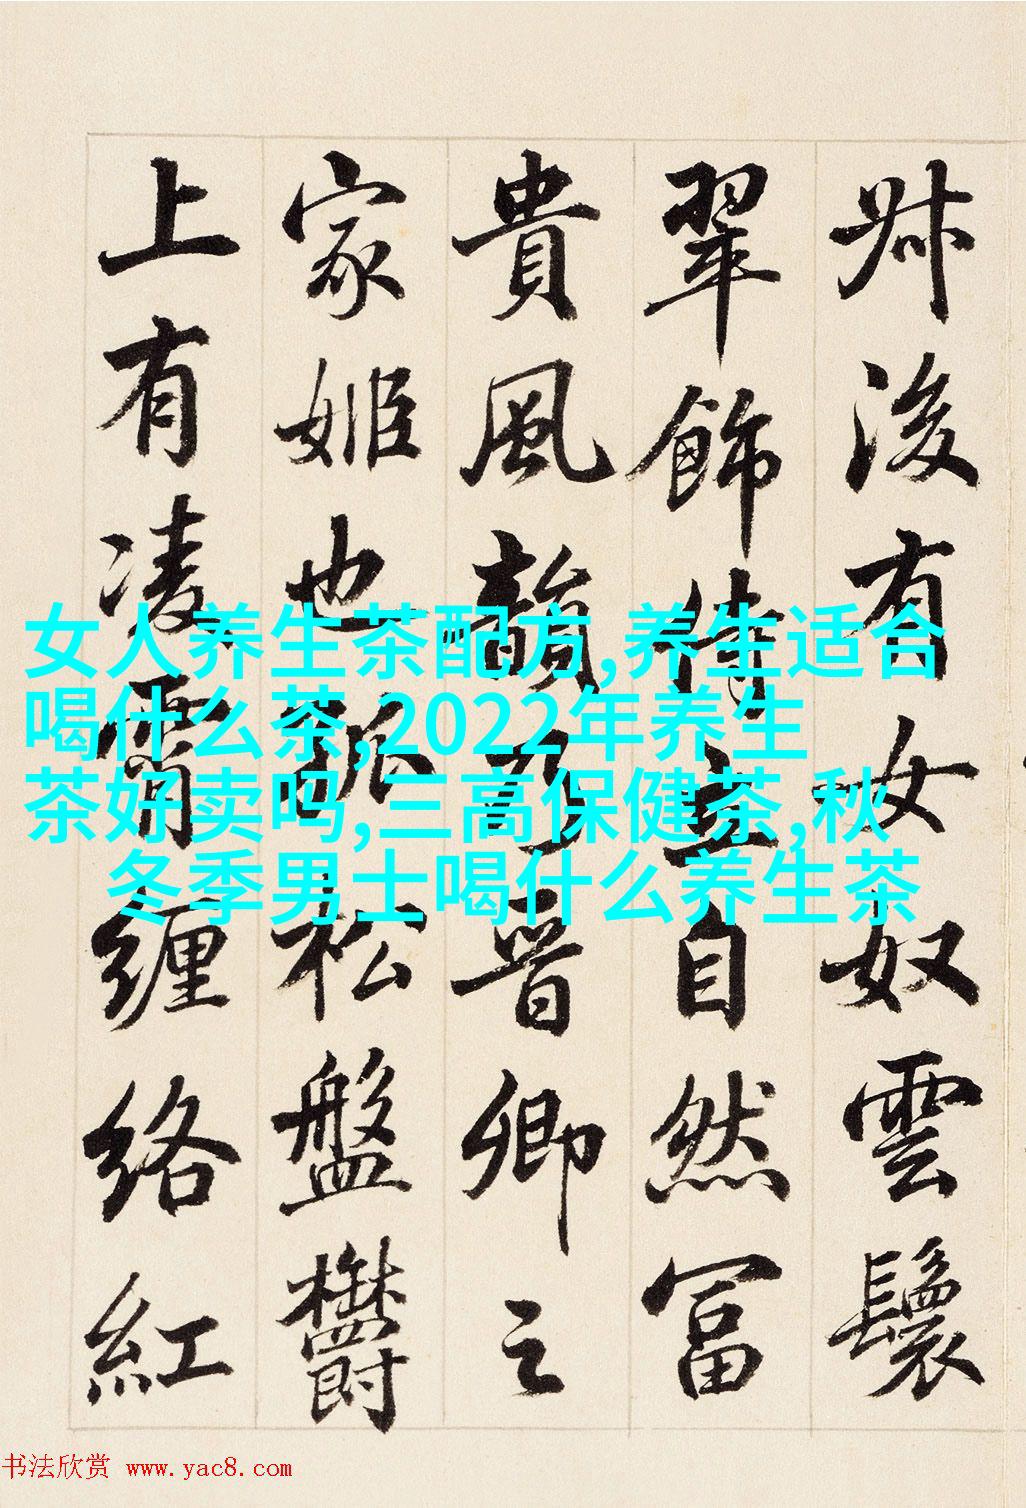 牀後有女奴雲鬟
翠飾侍立自然冨
貴風韻乃晋卿之
家姬也孤松盤欝
上有凌霄纏络紅
女人养生茶配方,养生适合
喝什么茶,2022年养生
茶好卖吗,三高保健茶,秋
冬季男士喝什么养生茶
书法欣赏 www.yac8.com